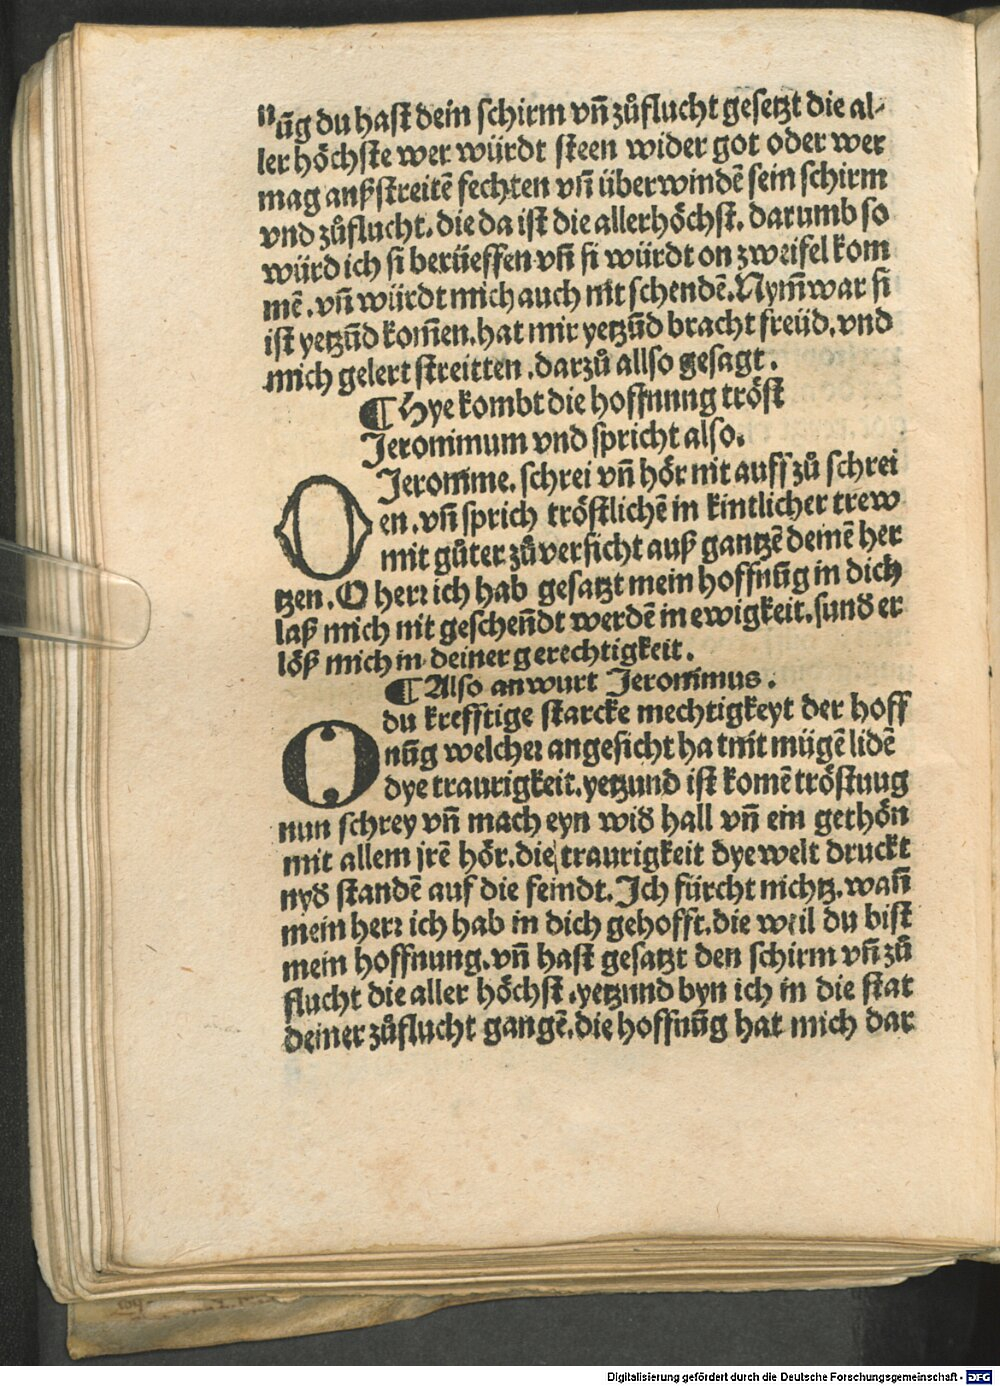 nũg du hast dein schirm vñ zůflucht gesetzt die al-
ler höchste wer würdt steen wider got oder wer
mag auß streitẽ fechten vñ überwindẽ sein schirm
vnd zůflucht. die da ist die allerhöchst. darumb so
würd ich si berüeffen vñ si würdt on zweifel kom
mẽ. vñ würdt mich auch nit schendẽ. Nym̃ war si
ist yetzũd kom̃en. hat mir yetzũd bracht freüd. vnd
mich gelert streitten. darzů allso gesagt.
¶ Hye kombt die hoffnung tröst
Jeronimum vnd spricht also.
O Jeronime. schrei vñ hör nit auff zů schrei
en. vñ sprich tröstlichẽ in kintlicher trew
mit gůter zůversicht auß gantzẽ deinẽ her
tzen. O herr ich hab gesatzt mein hoffnũg in dich
laß mich nit geschen̄dt werdẽ in ewigkeit. sunđ er
löß mich in deiner gerechtigkeit.
¶ Also anwurt Jeronimus.
O du krefftige starcke mechtigkeyt der hoff
nũg welcher angesicht hat nit mügẽ lidẽ
dye traurigkeit. yetzund ist komẽ tröstuug
nun schrey vñ mach eyn wiđ hall vñ ein gethön
mit allem jrẽ hör. die traurigkeit dye welt druckt
nyđ standẽ auf die feindt. Ich fürcht nichtz. wañ
mein herr ich hab in dich gehofft. die weil du bist
mein hoffnung. vñ hast gesatzt den schirm vñ zů
flucht die aller höchst. yetzund byn ich in die stat
deiner zůflucht gangẽ. die hoffnũg hat mich dar
Digitalisierung gefördert durch die Deutsche Forschungsgemeinschaft - DFG